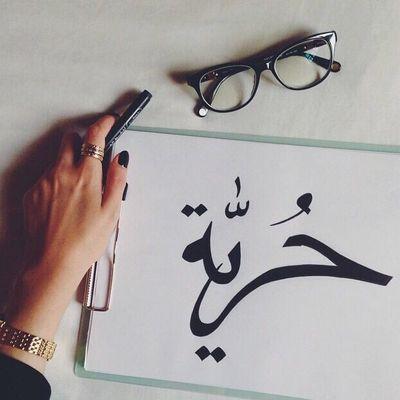 حُريَّة